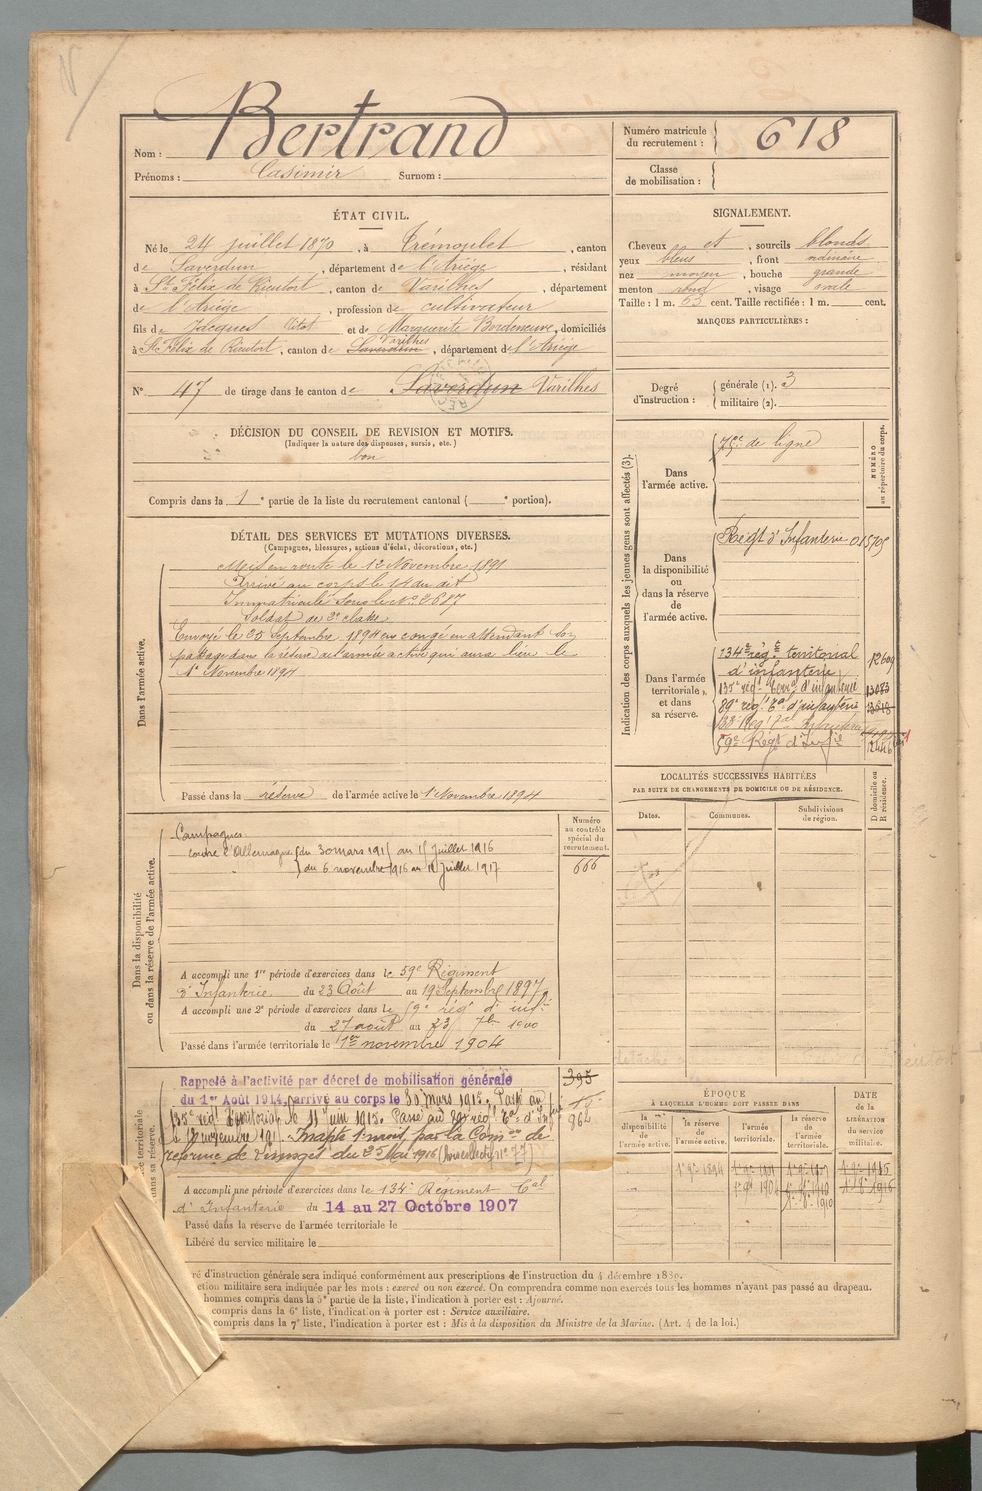 Nom : Bertrand
Prénoms : Casimir Surnom :
Numéro matricule du recrutement : 618
Classe de mobilisation :
ÉTAT CIVIL.
Né le 24 juillet 1870, à Trémoulet, canton
de Saverdun, département de l'Ariège, résidant
à St Félix de Rieutort, canton de Varilhes, département
de l'Ariège, profession de cultivateur
fils de Jacques et de Marguerite Bordeneuve, domiciliés
à St Félix de Rieutort, canton de Saverdun Varilhes, département de l'Ariège
N° 47 de tirage dans le canton de Saverdun Varilhes
SIGNALEMENT.
Cheveux et, sourcils blonds
yeux bleus, front ordinaire
nez moyen, bouche grande
menton rond, visage ovale
Taille : 1 m. 63 cent. Taille rectifiée : 1 m. cent.
MARQUES PARTICULIÈRES :
Degré d'instruction : générale (1). 3
militaire (2).
DÉCISION DU CONSEIL DE REVISION ET MOTIFS.
(Indiquer la nature des dispenses, sursis, etc.)
bon
Compris dans la 1e partie de la liste du recrutement cantonal ( e portion).
DÉTAIL DES SERVICES ET MUTATIONS DIVERSES.
(Campagnes, blessures, actions d'éclat, décorations, etc.)
Dans l'armée active.
Mis en route le 12 Novembre 1891
Arrivé au corps le 14 du dit
Immatriculé sous le No 2687
Soldat de 2e classe
Envoyé le 25 Septembre 1894 en congé en attendant son
passage dans la réserve de l'armée active qui aura lieu le
1er Novembre 1894
Passé dans la réserve de l'armée active le 1 Novembre 1894
Indication des corps auxquels les jeunes gens sont affectés (3).
NUMÉRO au répertoire du corps.
Dans l'armée active.
de ligne
Dans la disponibilité ou dans la réserve de l'armée active.
Regt d'Infanterie
Dans l'armée territoriale et dans sa réserve.
134e rég.t territorial
d'infanterie 12609
135e rég.t Terr.l d'infanterie 13083
89e rég.t Tal d'infanterie
59e Regt d'Inf.ie
LOCALITÉS SUCCESSIVES HABITÉES
PAR SUITE DE CHANGEMENTS DE DOMICILE OU DE RÉSIDENCE.
Dates. Communes. Subdivisions de région. D domicile ou R résidence.
Dans la disponibilité ou dans la réserve de l'armée active.
Numéro au contrôle spécial du recrutement.
666
Campagnes
contre l'Allemagne du 30 mars 1915 au 15 juillet 1916
du 6 novembre 1916 au 18 juillet 1917
A accompli une 1re période d'exercices dans le 59e Régiment
d'Infanterie du 23 Août au 19 Septembre 1897
A accompli une 2e période d'exercices dans le 59e rég.t d'inf.ie
du 27 août au 23 7bre 1900
Passé dans l'armée territoriale le 1er novembre 1904
Rappelé à l'activité par décret de mobilisation générale
du 1er Août 1914, arrivé au corps le 30 mars 1915. Passé au
135e rég.t Territorial le 11 juin 1915. Passé au 89e rég.t Tal d'Inf
Inapte 1 mois par la Com.on de
réforme de Limoges du 22 Mai 1916
395
962
A accompli une période d'exercices dans le 134e Régiment Tal
d'Infanterie du 14 au 27 Octobre 1907
Passé dans la réserve de l'armée territoriale le
Libéré du service militaire le
ÉPOQUE
À LAQUELLE L'HOMME DOIT PASSER DANS
la disponibilité de l'armée active. la réserve de l'armée active. l'armée territoriale. la réserve de l'armée territoriale.
DATE de la LIBÉRATION du service militaire.
1er 9bre 1894
ré d'instruction générale sera indiqué conformément aux prescriptions de l'instruction du 4 décembre 1889.
ction militaire sera indiquée par les mots : exercé ou non exercé. On comprendra comme non exercés tous les hommes n'ayant pas passé au drapeau.
hommes compris dans la 5e partie de la liste, l'indication à porter est : Ajourné.
compris dans la 6e liste, l'indication à porter est : Service auxiliaire.
compris dans la 7e liste, l'indication à porter est : Mis à la disposition du Ministre de la Marine. (Art. 4 de la loi.)